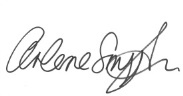 Arlene Smyth